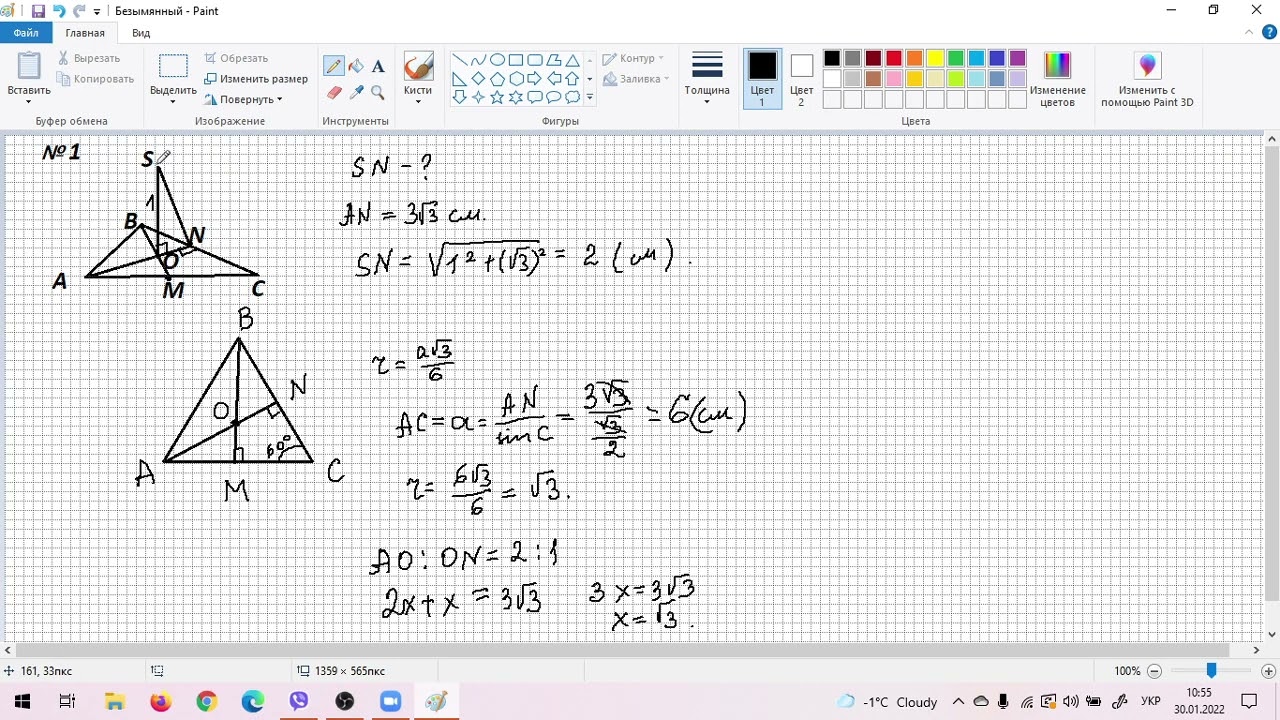 Безымянный - Paint
Файл
Главная
Вид
Вставить
Вырезать
Копировать
Буфер обмена
Выделить
Обрезать
Изменить размер
Повернуть
Изображение
Инструменты
Кисти
Контур
Заливка
Фигуры
Толщина
Цвет 1
Цвет 2
Изменение цветов
Изменить с помощью Paint 3D
Цвета
№1
S
1
B
N
O
A
M
C
SN - ?
AN = 3√3 см.
SN = √1² + (√3)² = 2 (см).
B
N
O
60°
A
M
C
r = a√3/6
AC = a = AN/sin C = 3√3/(√3/2) = 6 (см)
r = 6√3/6 = √3.
AO : ON = 2 : 1
2x + x = 3√3
3x = 3√3
x = √3.
161, 33пкс
1359 × 565пкс
100%
-1°C Cloudy
УКР
10:55
30.01.2022